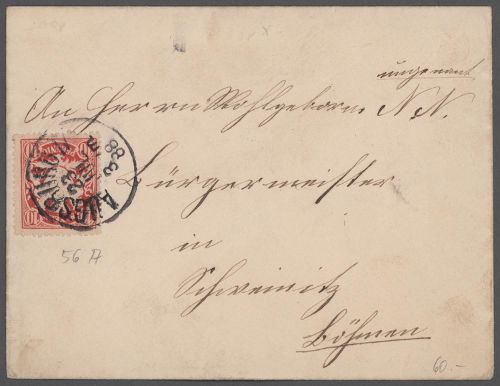 ungenannt
An Herrn Wohlgeborn. N N.
Bürgermeister
in
Schweinitz
Böhmen
AUGSBURG
3 88
10
56 A
60.-